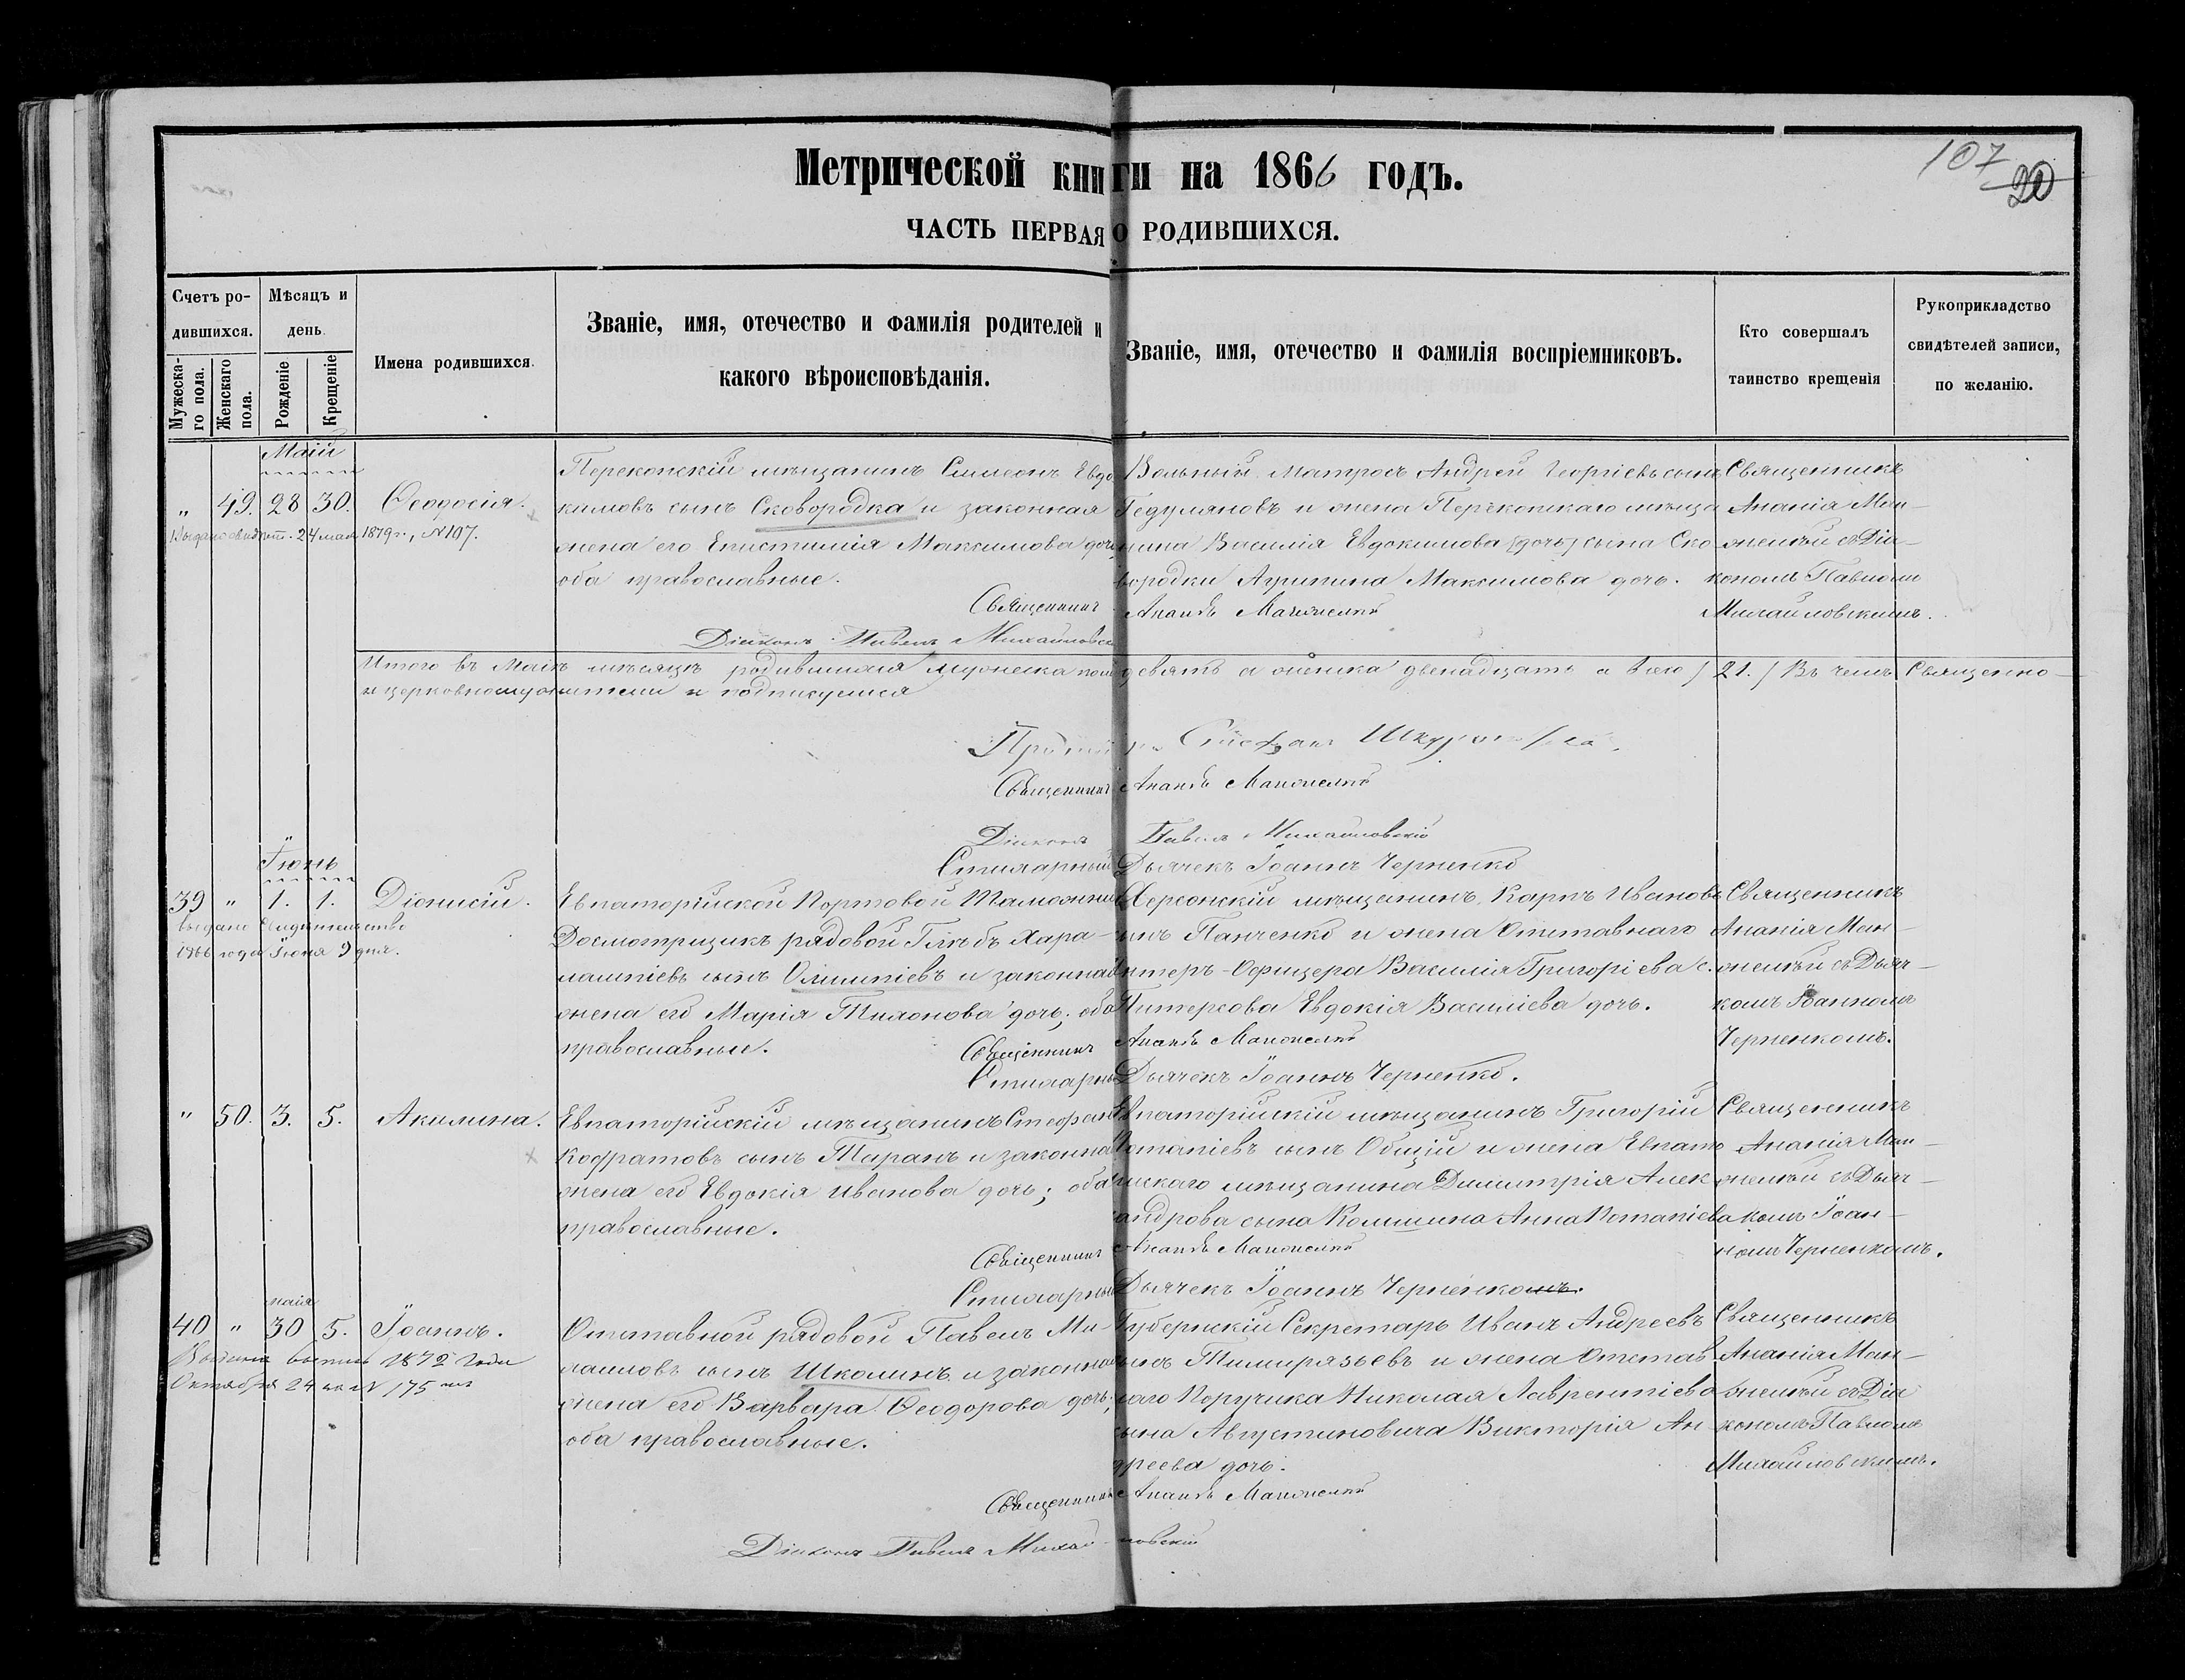 107
20
Метрической книги на 1866 годъ.
ЧАСТЬ ПЕРВАЯ О РОДИВШИХСЯ.
Счетъ ро-
дившихся.
Мужеска-
го пола.
Женскаго
пола.
Мѣсяцъ и
день
Рожденіе
Крещеніе
Имена родившихся.
Званіе, имя, отечество и фамилія родителей и
какого вѣроисповѣданія.
Званіе, имя, отечество и фамилія воспріемниковъ.
Кто совершалъ
таинство крещенія
Рукоприкладство
свидѣтелей записи,
по желанію.
Маій
„ 49. 28 30. Ѳеодосія.
24 мая 1879 г., №107.
Перекопскій мѣщанинъ Симеонъ Евдо
кимовъ сынъ Сковородка и законная
жена его Епистимія Максимова дочь
оба православные.
Вольный Матросъ Андрей Георгіевъ сынъ
Гедуляновъ и жена Перекопскаго мѣща
нина Василія Евдокимова (дочь) сына Ско
вородки Агрипина Максимова дочь.
Священникъ
Ананія Ман-
желѣй съ Діа-
кономъ Павломъ
Михайловскимъ.
Священникъ
Діаконъ Павелъ Михайловск
Итого въ Маіѣ мѣсяцѣ родившихся мужеска пола девять а женска двенадцать а всего / 21. / Въ чемъ Священно-
и церковнослужители и подписуемся
Стефанъ
Священникъ
Діаконъ Павелъ Михайловскій
Стихарный Дьячекъ Іоаннъ Черненко
Іюнь
39 „ 1. 1. Діонисій.
выдано свидетельство
1866 года Іюня 9 дня.
Евпаторійской Портовой Таможни
Досмотрщикъ рядовой Глѣбъ Хара-
лампіевъ сынъ Олимпіевъ и законная
жена его Марія Тихонова дочь; оба
православные.
Херсонскій мѣщанинъ Карпъ Ивановъ
сынъ Панченко и жена Отставнаго
Унтеръ-Офицера Василія Григоріева с.
Питерсова Евдокія Василіева дочь.
Священникъ
Ананія Ман-
желѣй съ Дьяч-
комъ Іоанномъ
Черненкомъ.
Священникъ
Стихарный Дьячекъ Іоаннъ Черненко.
„ 50. 3. 5. Акилина.
Евпаторійскій мѣщанинъ Стефанъ
Кодратовъ сынъ Таранъ и законная
жена его Евдокія Иванова дочь; оба
православные.
Евпаторійскій мѣщанинъ Григорій
Потапіевъ сынъ Общій и жена Евпато
рійскаго мѣщанина Димитрія Алек
сандрова сына Комшина Анна Потапіева
Священникъ
Ананія Ман-
желѣй съ Дьяч-
комъ Іоан-
номъ Черненкомъ.
Священникъ
Стихарный Дьячекъ Іоаннъ Черненкомъ.
маія
40 „ 30 5. Іоаннъ.
1872 года
Октября 24 175
Отставной рядовой Павелъ Ми-
хаиловъ сынъ Школинъ и законная
жена его Варвара Ѳеодорова дочь;
оба православные.
Губернскій Секретарь Иванъ Андреевъ
сынъ Тимирязьевъ и жена Отстав
наго Поручика Николая Лаврентіева
сына Августиновича Викторія Ан
дреева дочь.
Священникъ
Ананія Ман-
желѣй съ Діа
кономъ Павломъ
Михайловскимъ.
Священникъ
Діаконъ Павелъ Михайловскій